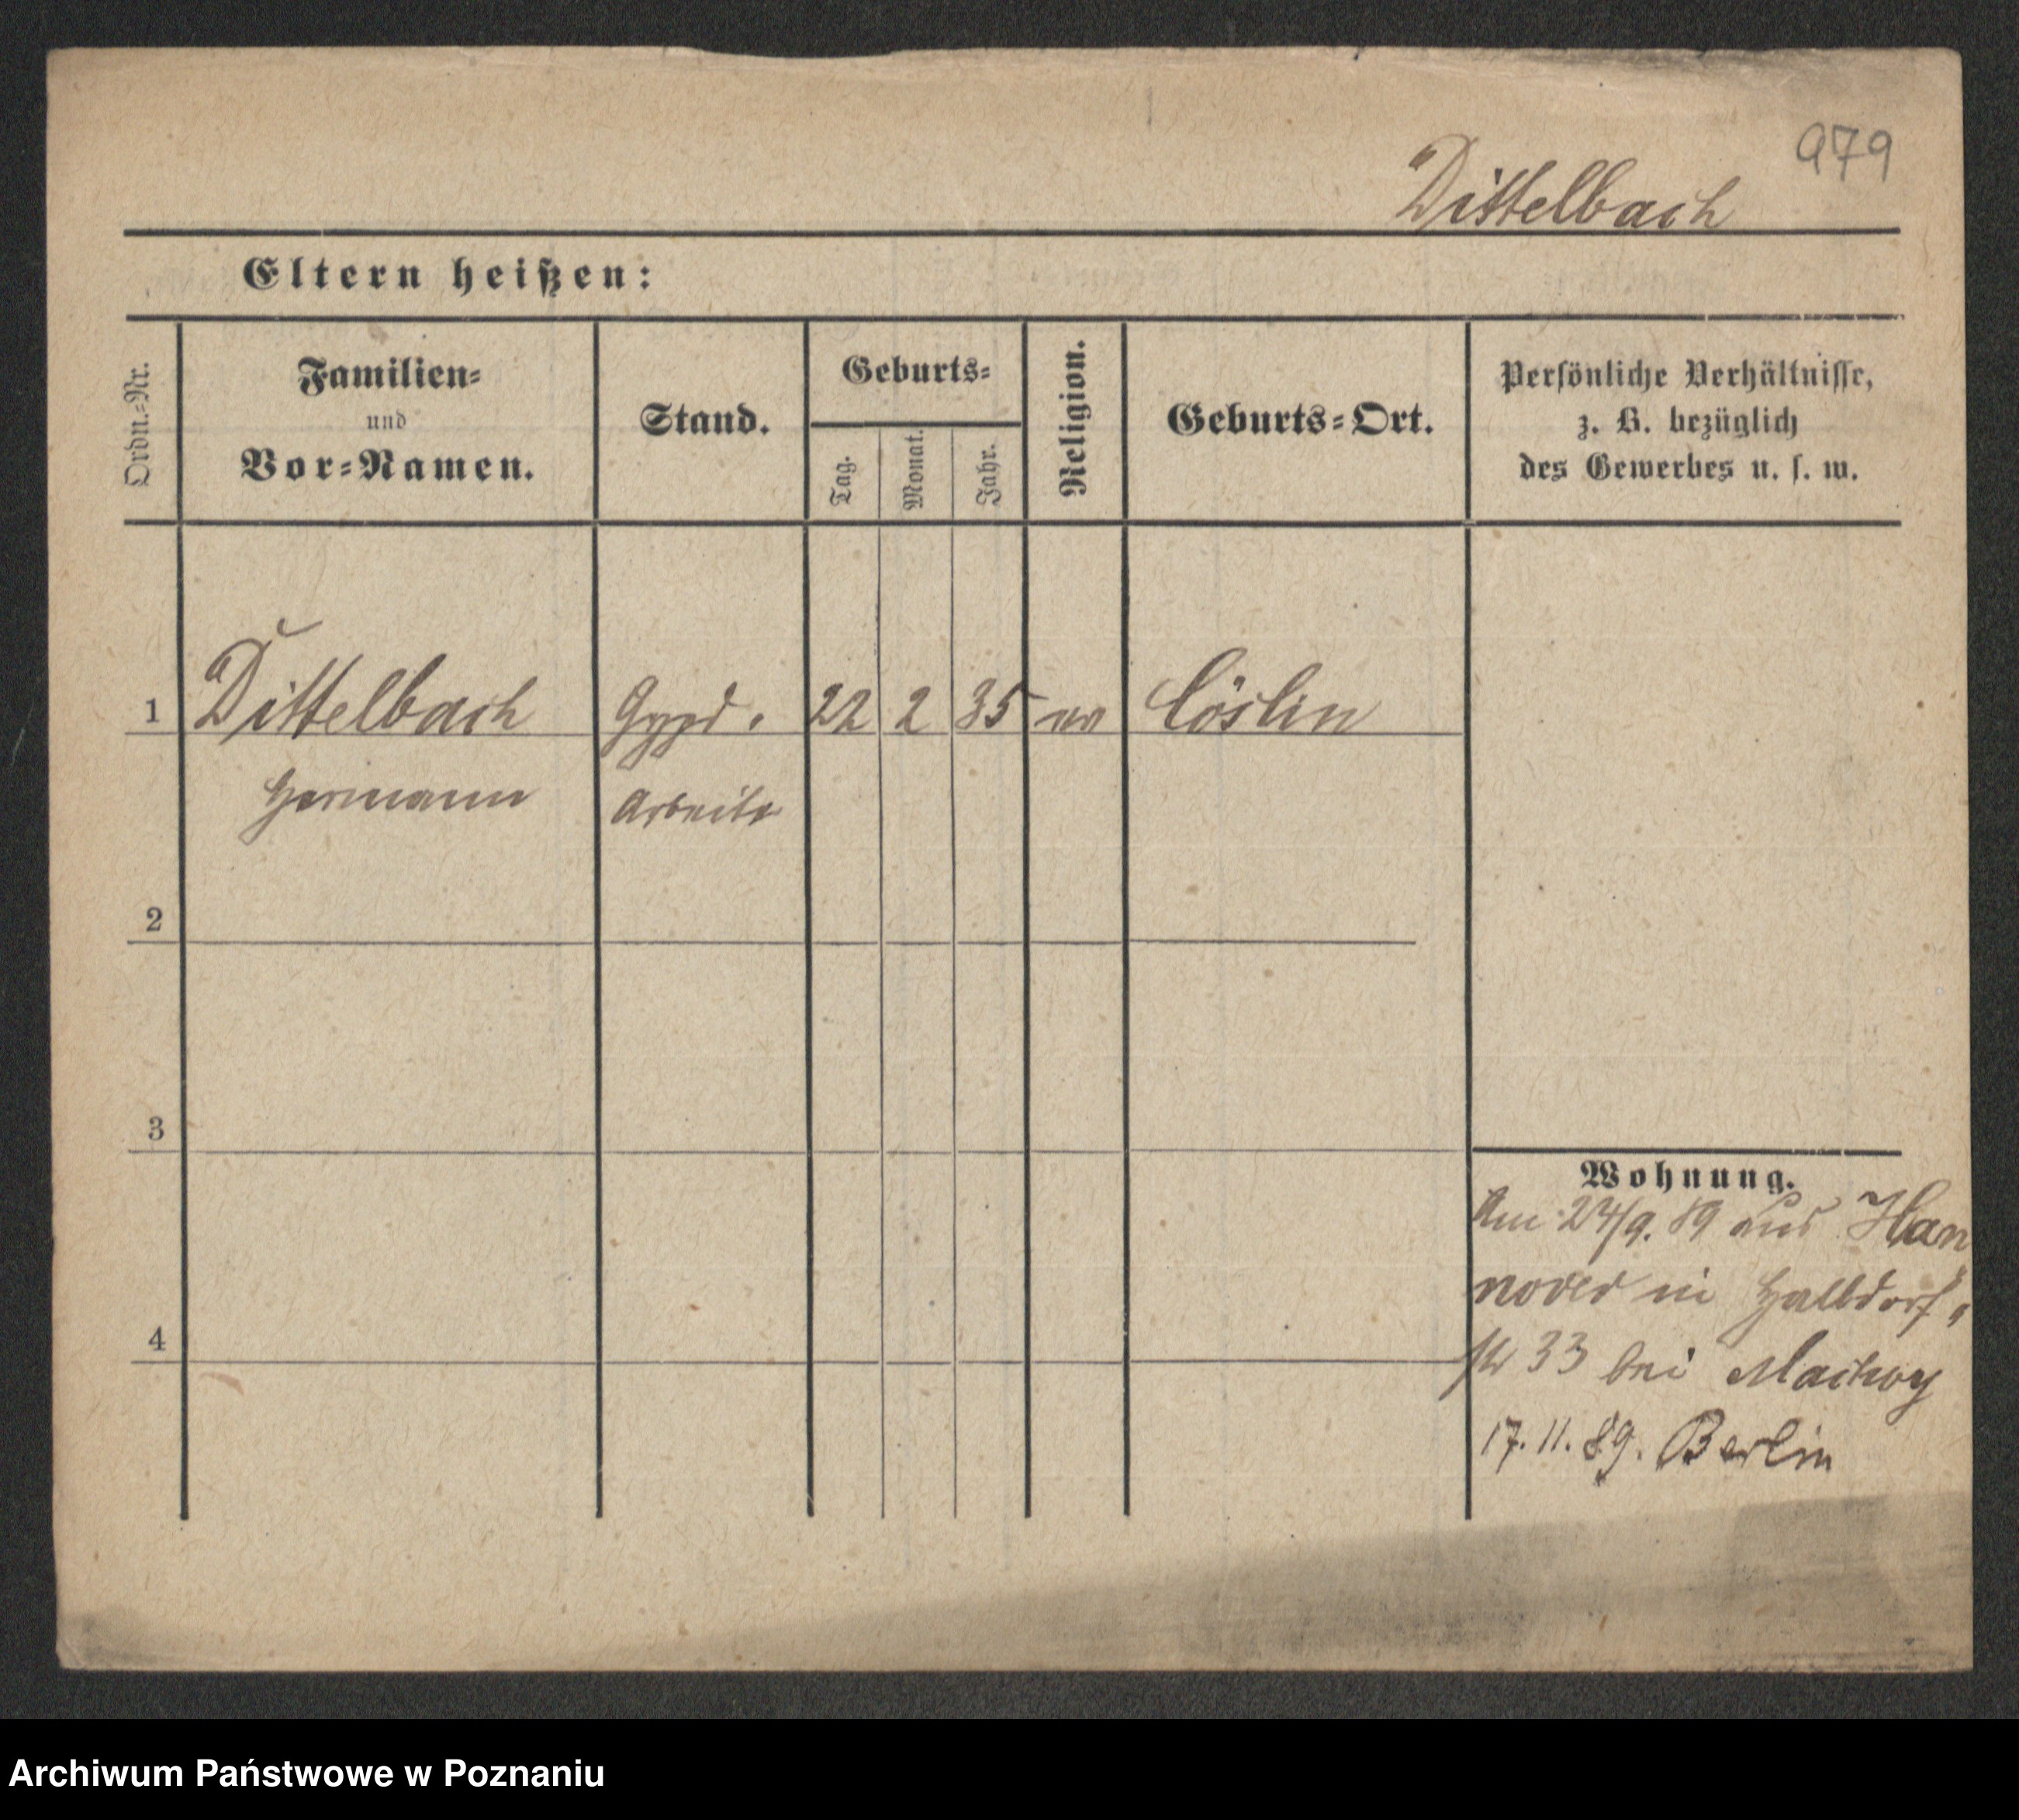 979
Dittelbach
Eltern heißen:
Ordn.-Nr.
Familien-
und
Vor-Namen.
Stand.
Geburts-
Tag.
Monat.
Jahr.
Religion.
Geburts-Ort.
Persönliche Verhältnisse,
z. B. bezüglich
des Gewerbes u. s. w.
1 Dittelbach 22 2 35 ev Cöslin
Hermann Arbeiter
2
3
Wohnung.
Am 24/9. 89 aus Han
nover in Halbdorf"
str 33 bei
4
17. 11. 89. Berlin
Archiwum Państwowe w Poznaniu